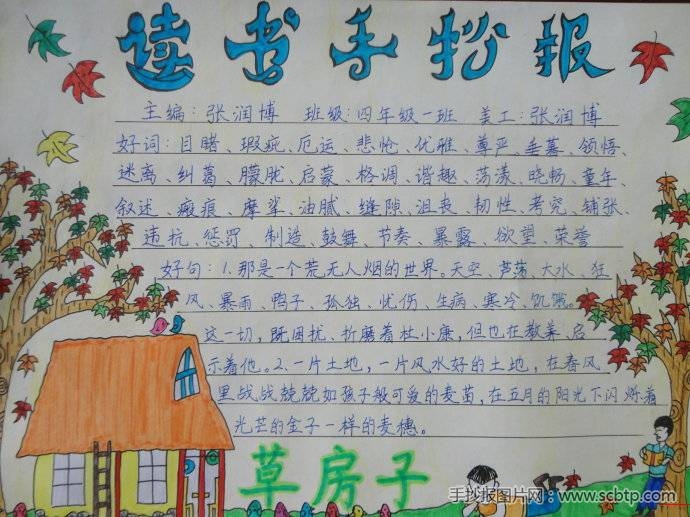 读书手抄报
主编:张润博 班级:四年级一班 美工:张润博
好词:目睹、瑕疵、厄运、悲怆、优雅、尊严、垂暮、领悟、
迷离、纠葛、朦胧、启蒙、格调、谐趣、荡漾、晓畅、童年、
叙述、瘢痕、摩挲、油腻、缝隙、沮丧、韧性、考究、铺张、
违抗、惩罚、制造、鼓舞、节奏、暴露、欲望、荣誉
好句:1.那是一个荒无人烟的世界。天空、芦荡、大水、狂
风、暴雨、鸭子、孤独、忧伤、生病、寒冷、饥饿。
这一切,既困扰、折磨着杜小康,但也在教养、启
示着他。2.一片土地,一片风水好的土地,在春风
里战战兢兢如孩子般可爱的麦苗,在五月的阳光下闪烁着
光芒的金子一样的麦穗。
草房子
手抄报图片网-www.scbtp.com